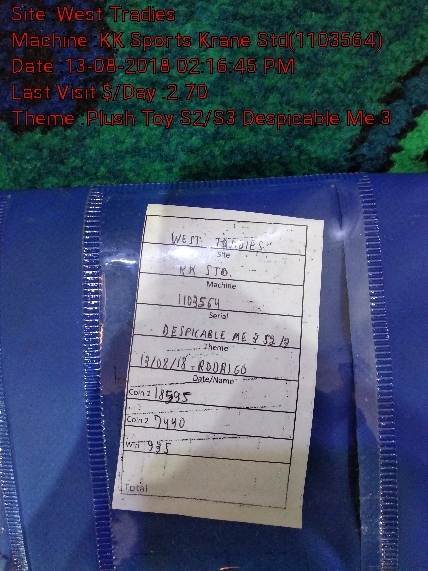 Site :West Tradies
Machine :KK Sports Krane Std(1103564)
Date :13-08-2018 02:16:45 PM
Last Visit $/Day :2.70
Theme :Plush Toy S2/S3 Despicable Me 3
WEST TRADIES
Site
KK STD.
Machine
1103564
Serial
DESPICABLE ME 3 S2/3
Theme
13/08/18 - RODRIGO
Date/Name
Coin 1 18595
Coin 2 7440
Win 995
Total